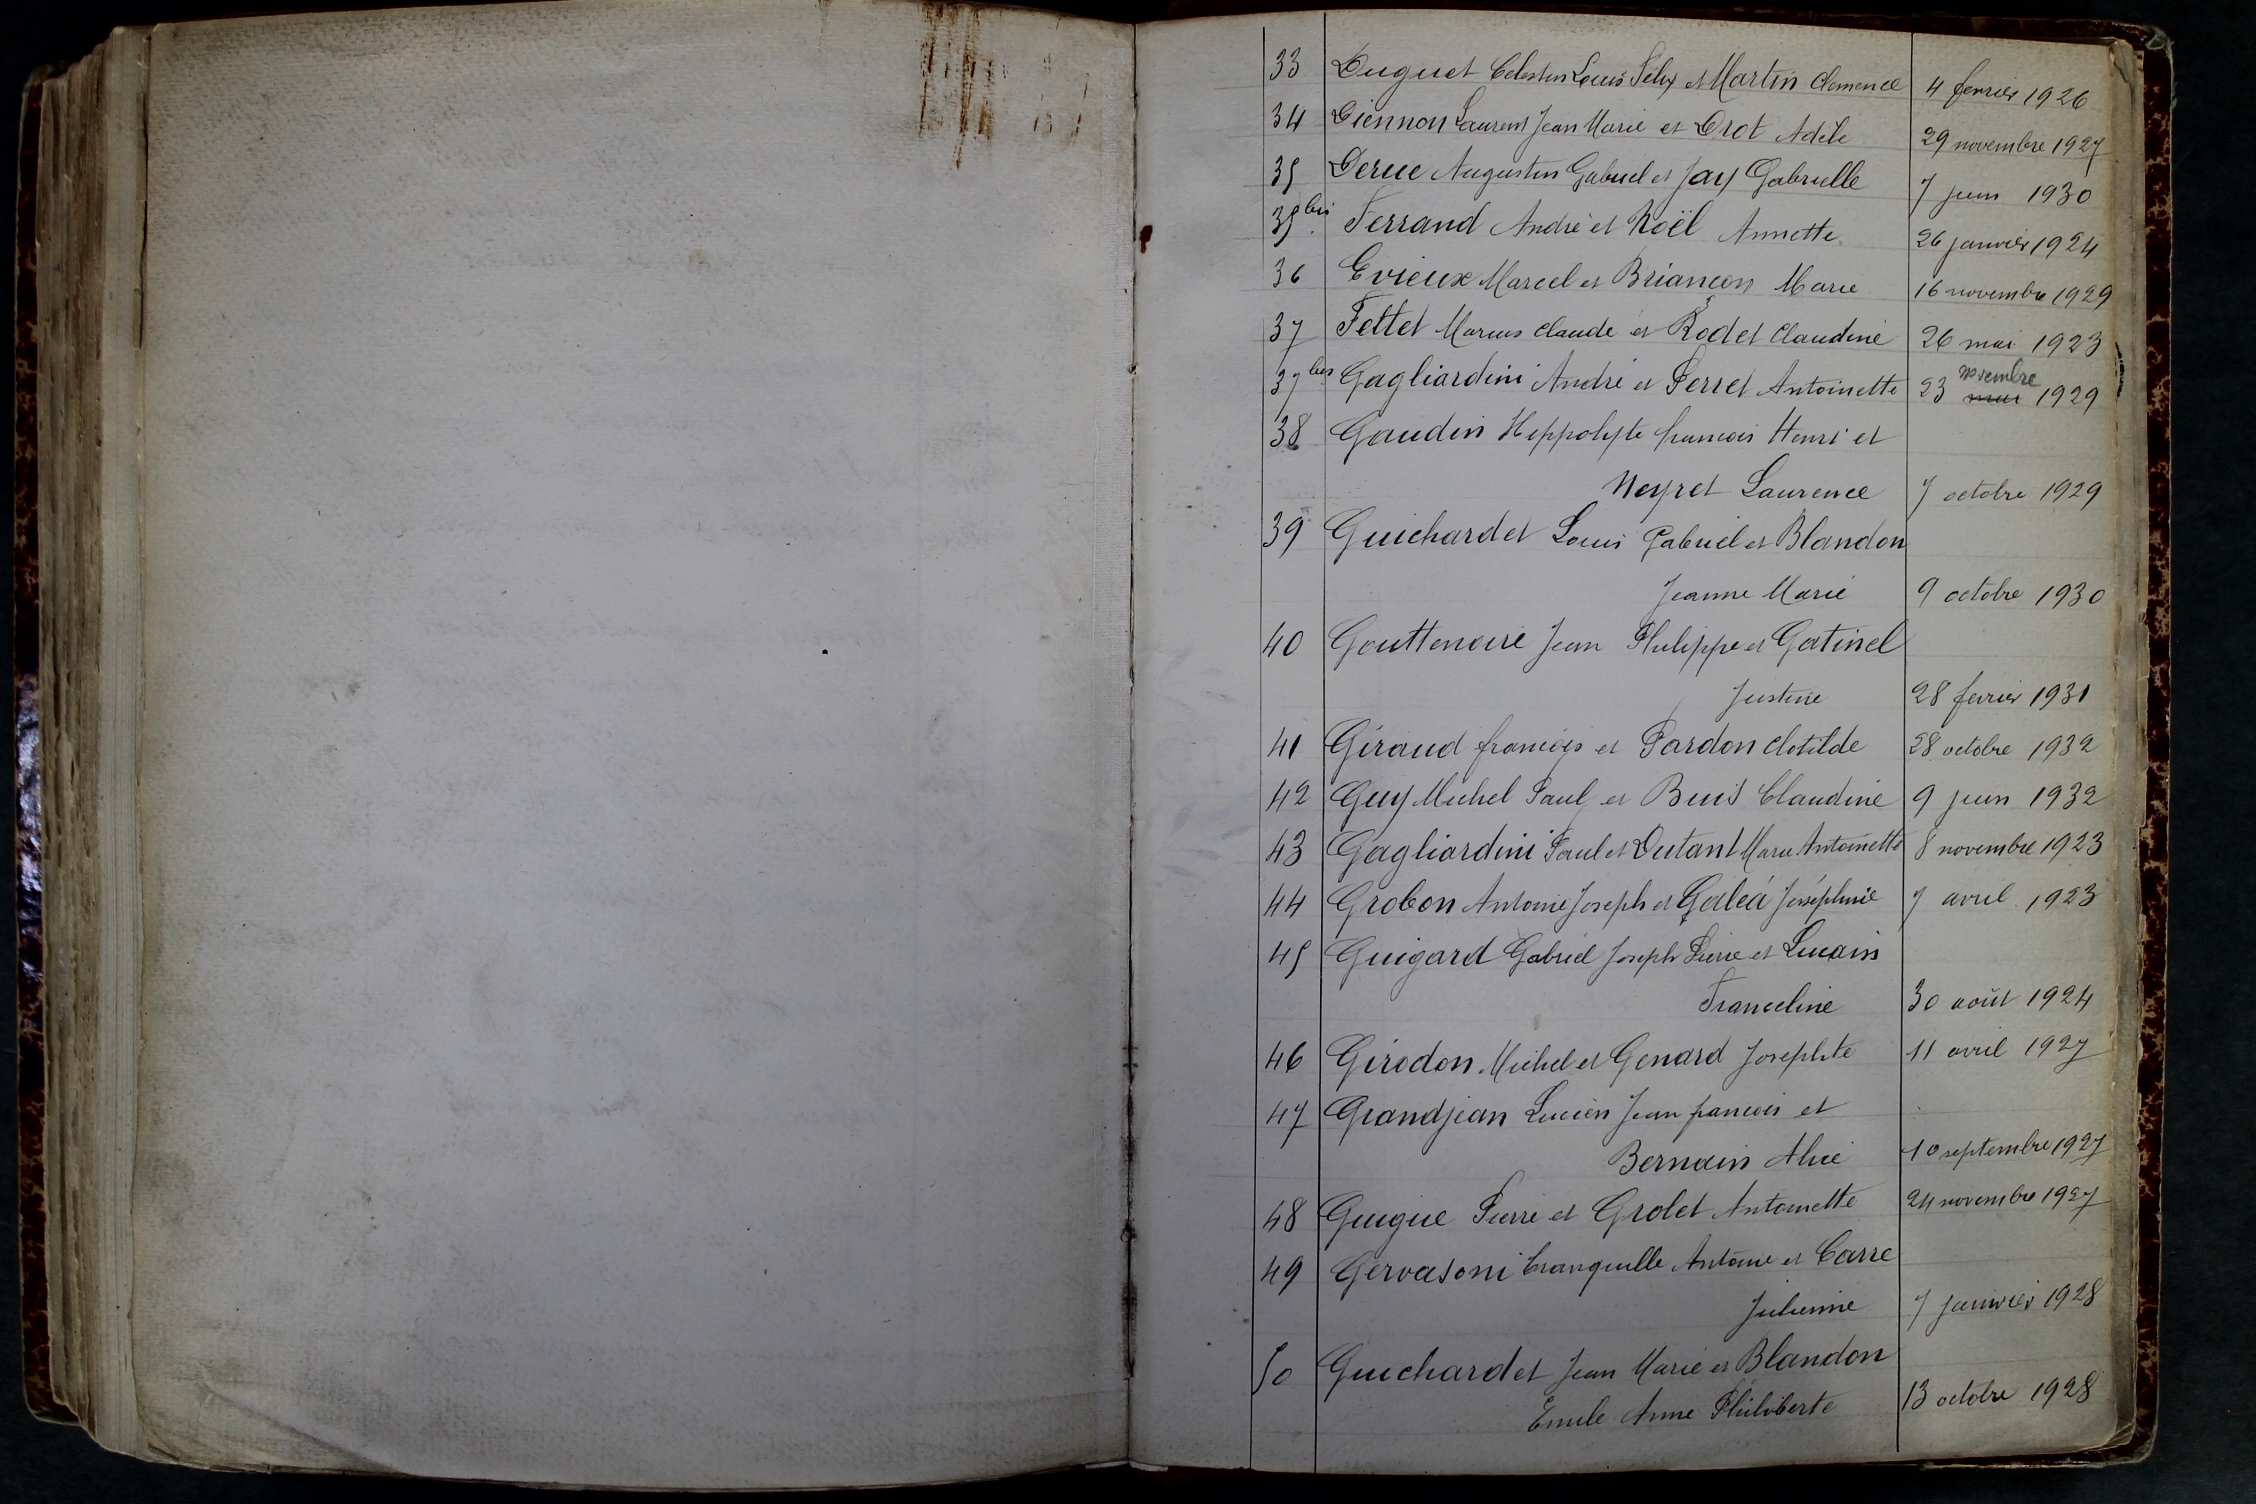 33 Duguet Celestin Louis Félix et Martin Clemence 4 fevrier 1926
34 Diennon Laurent Jean Marie et Drot Adèle 29 novembre 1927
35 Derue Augustin Gabriel et Jay Gabrielle 7 juin 1930
35 bis Ferrand André et Noël Annette 26 janvier 1924
36 Evieux Marcel et Briançon Marie 16 novembre 1929
37 Fettet Marius Claude et Rodet Claudine 26 mai 1923
37 bis Gagliardini André et Perret Antoinette 23 novembre mai 1929
38 Gaudin Hippolyte françois Henri et
Neyret Laurence 7 octobre 1929
39 Guichardet Louis Gabriel et Blandon
Jeanne Marie 9 octobre 1930
40 Gouttenoire Jean Philippe et Gatinel
Justine 28 fevrier 1931
41 Giraud françois et Pardon Clotilde 28 octobre 1932
42 Guy Michel Paul et Buis Claudine 9 juin 1932
43 Gagliardini Paul et Dutant Marie Antoinette 8 novembre 1923
44 Grobon Antoine Joseph et Galéa Joséphine 7 avril 1923
45 Guigard Gabriel Joseph Pierre et Lucain
Franceline 30 août 1924
46 Girodon Michel et Genard Josephte 11 avril 1927
47 Grandjean Lucien Jean francois et
Bernain Alice 10 septembre 1927
48 Guigue Pierre et Grolet Antoinette 24 novembre 1927
49 Gervasoni Tranquille Antoine et Carre
Julienne 7 janvier 1928
50 Guichardet Jean Marie et Blandon
Emile Anne Philiberte 13 octobre 1928